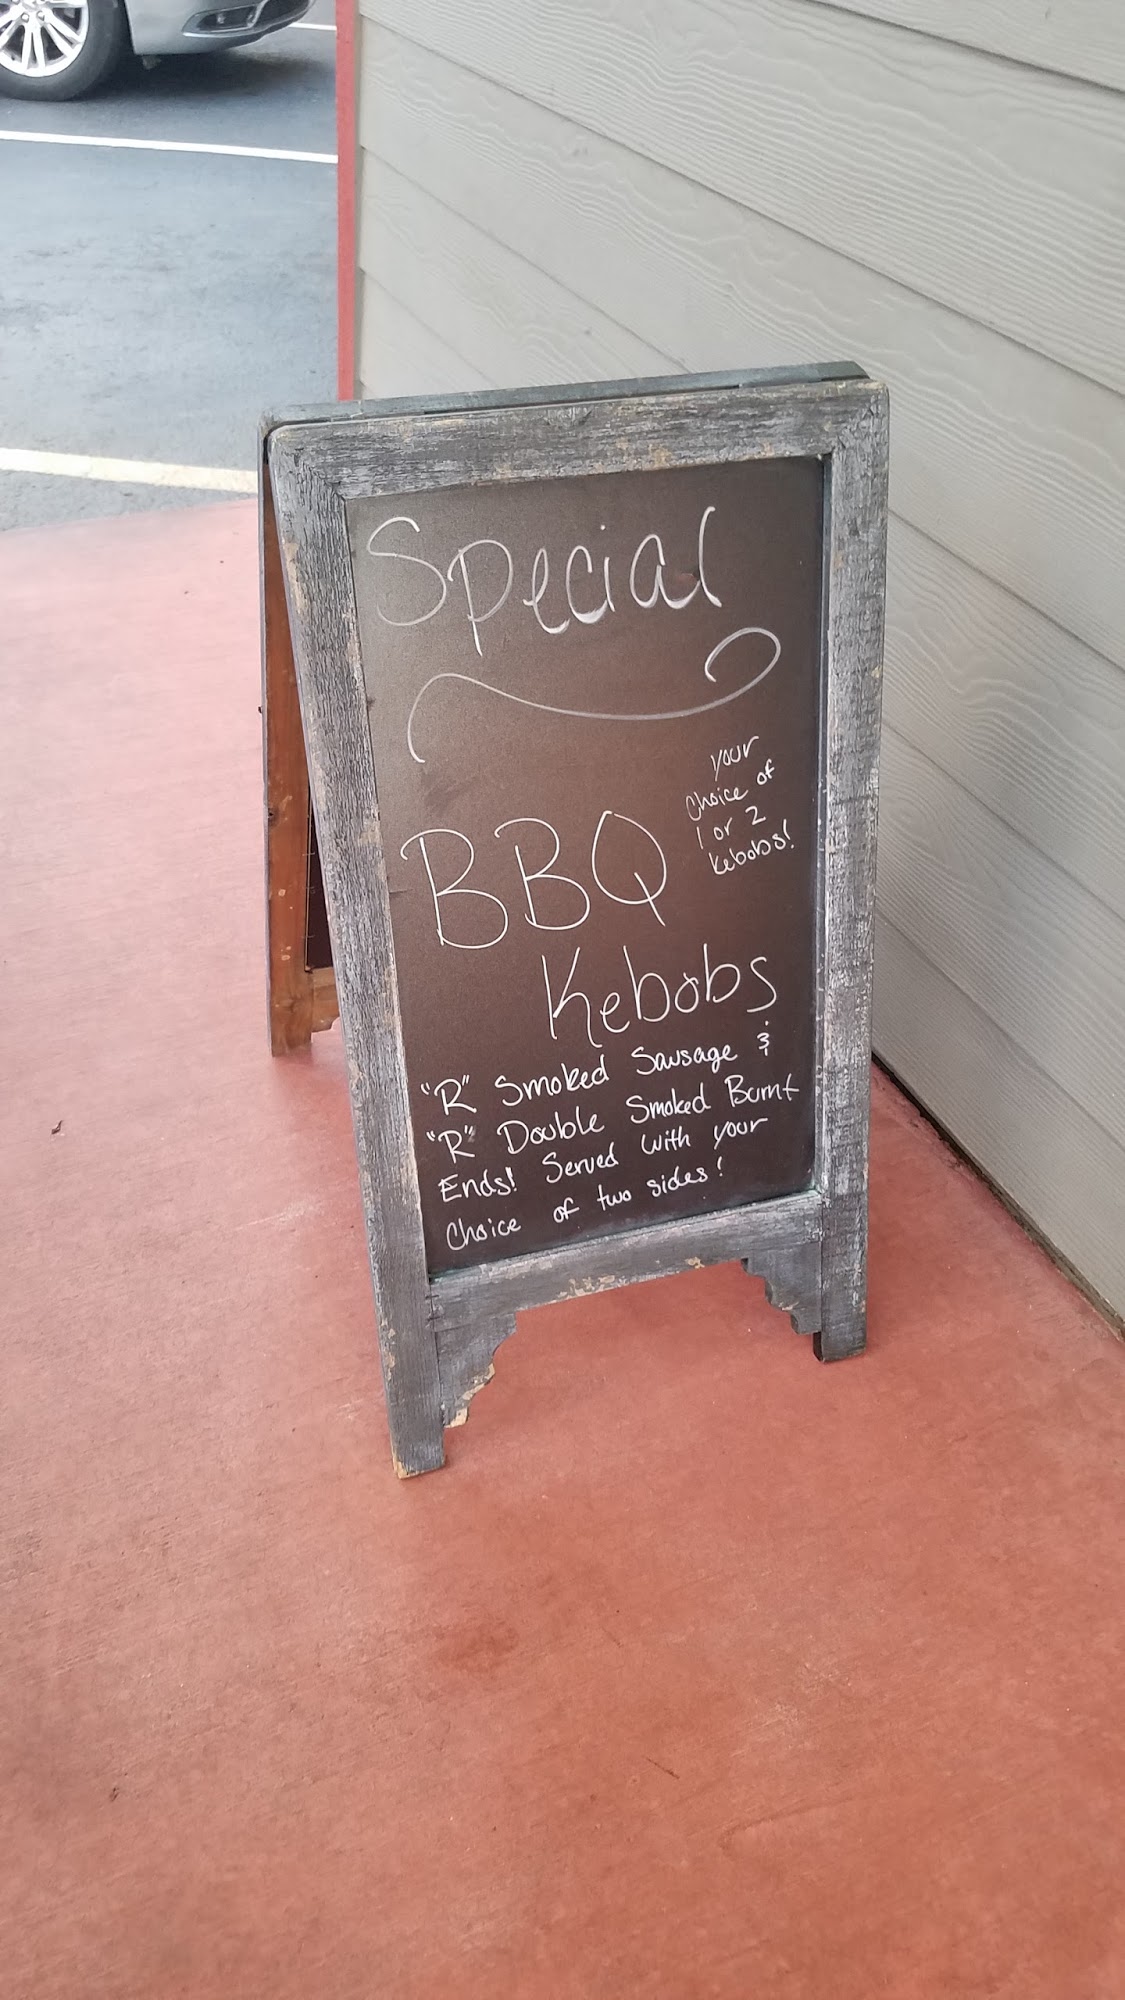 Special
your
Choice of
1 or 2
kebobs!
BBQ
Kebobs
"R" Smoked Sausage &
"R" Double Smoked Burnt
Ends! Served with your
Choice of two sides!